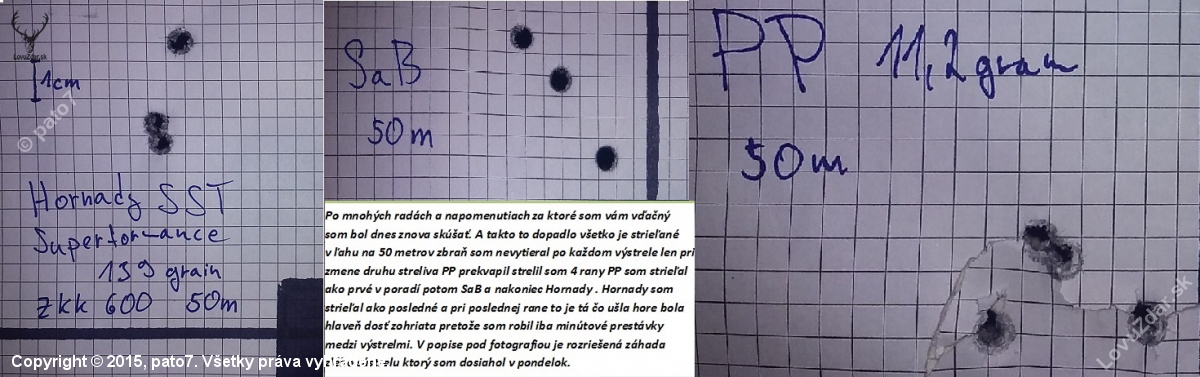 LovuZdar.sk
1cm
© pato7
Hornady SST
Superformance
139 grain
zkk 600 50m
Copyright © 2015, pato7. Všetky práva
SaB
50m
Po mnohých radách a napomenutiach za ktoré som vám vďačný
som bol dnes znova skúšať. A takto to dopadlo všetko je strieľané
v ľahu na 50 metrov zbraň som nevytieral po každom výstrele len pri
zmene druhu streliva PP prekvapil strelil som 4 rany PP som strieľal
ako prvé v poradí potom SaB a nakoniec Hornady . Hornady som
strieľal ako posledné a pri poslednej rane to je tá čo ušla hore bola
hlaveň dosť zohriata pretože som robil iba minútové prestávky
medzi výstrelmi. V popise pod fotografiou je rozriešená záhada
ktorý som dosiahol v pondelok.
PP 11,2 gram
50m
LovuZdar.sk